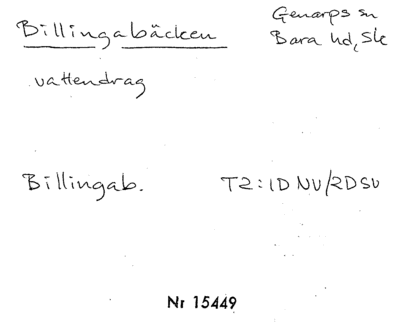 Billingabäcken
Genarps sn
Bara hd, Sk
vattendrag
Billingab.
T2:1D NV/2D SV
Nr 15449